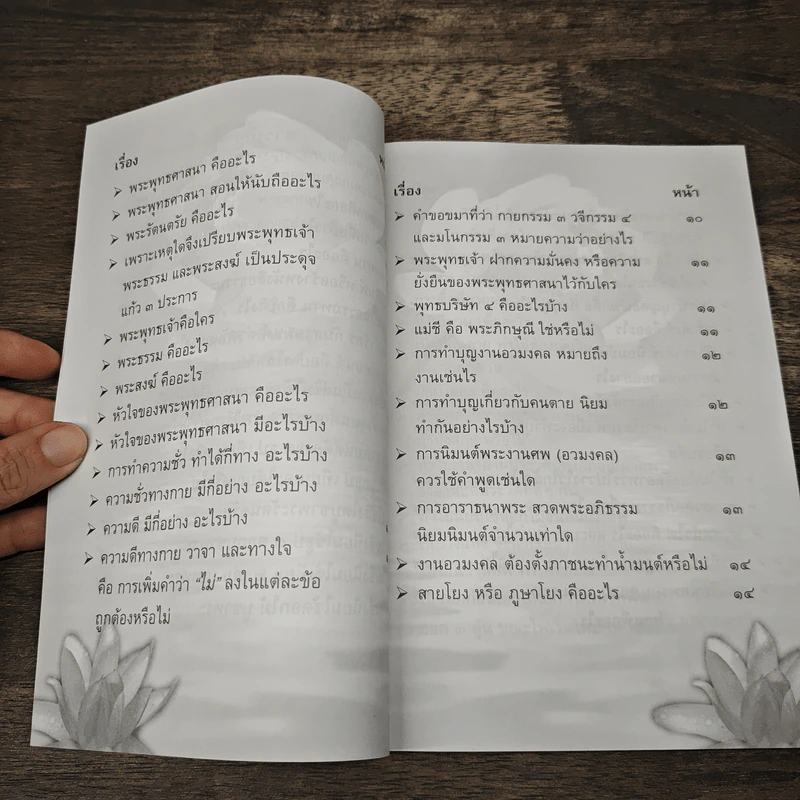 เรื่อง
➢ พระพุทธศาสนา คืออะไร
➢ พระพุทธศาสนา สอนให้นับถืออะไร
➢ พระรัตนตรัย คืออะไร
➢ เพราะเหตุใดจึงเปรียบพระพุทธเจ้า
พระธรรม และพระสงฆ์ เป็นประดุจ
แก้ว ๓ ประการ
➢ พระพุทธเจ้าคือใคร
➢ พระธรรม คืออะไร
➢ พระสงฆ์ คืออะไร
➢ หัวใจของพระพุทธศาสนา คืออะไร
➢ หัวใจของพระพุทธศาสนา มีอะไรบ้าง
➢ การทำความชั่ว ทำได้กี่ทาง อะไรบ้าง
➢ ความชั่วทางกาย มีกี่อย่าง อะไรบ้าง
➢ ความดี มีกี่อย่าง อะไรบ้าง
➢ ความดีทางกาย วาจา และทางใจ
คือ การเพิ่มคำว่า “ไม่” ลงในแต่ละข้อ
ถูกต้องหรือไม่
เรื่อง หน้า
➢ คำขอขมาที่ว่า กายกรรม ๓ วจีกรรม ๔ ๑๐
และมโนกรรม ๓ หมายความว่าอย่างไร
➢ พระพุทธเจ้า ฝากความมั่นคง หรือความ ๑๑
ยั่งยืนของพระพุทธศาสนาไว้กับใคร
➢ พุทธบริษัท ๔ คืออะไรบ้าง ๑๑
➢ แม่ชี คือ พระภิกษุณี ใช่หรือไม่ ๑๑
➢ การทำบุญงานอวมงคล หมายถึง ๑๒
งานเช่นไร
➢ การทำบุญเกี่ยวกับคนตาย นิยม ๑๒
ทำกันอย่างไรบ้าง
➢ การนิมนต์พระงานศพ (อวมงคล) ๑๓
ควรใช้คำพูดเช่นใด
➢ การอาราธนาพระ สวดพระอภิธรรม ๑๓
นิยมนิมนต์จำนวนเท่าใด
➢ งานอวมงคล ต้องตั้งภาชนะทำน้ำมนต์หรือไม่ ๑๔
➢ สายโยง หรือ ภูษาโยง คืออะไร ๑๔